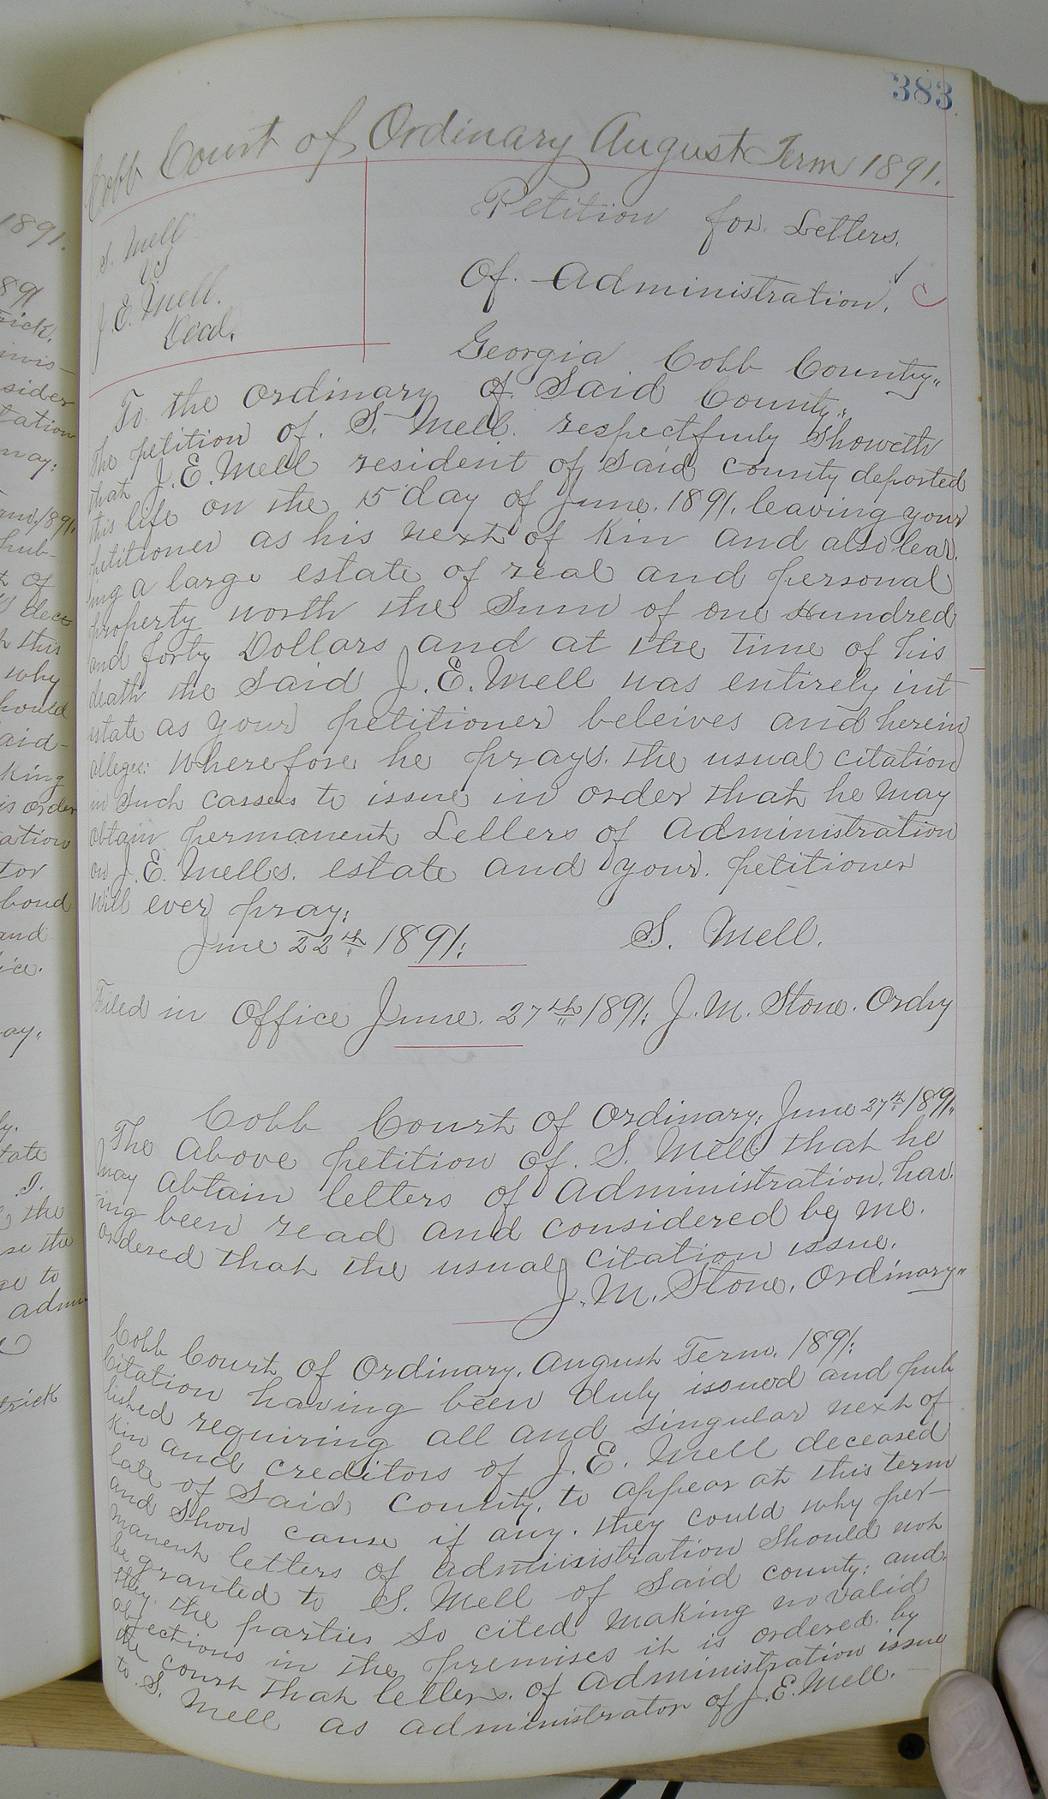 383
Cobb Court of Ordinary August Term 1891.
S. Mell
vs
J. E. Mell.
Dead.
Petition for Letters.
Of. Administration.
Georgia Cobb County"
To the Ordinary of Said County.
The petition of. S. Mell. respectfuly Showeth
that J. E. Mell resident of Said county deported
this life on the 15 day of June. 1891. leaving your
petitioner as his next of Kin and also leav
ing a large estate of real and personal
property worth the Sum of one Hundred
and forty Dollars and at the Time of his
death the Said J. E. Mell was entirely int
estate as your petitioner beleives and herein
alleges: Wherefore he prays. the usual citation
in Such casses to issue in order that he May
obtain permanent Letters of Administration
on J. E. Mells. estate and your. petitioner
will ever pray:
June 22nd 1891: S. Mell.
Filed in Office June. 27th 1891: J. M. Stone. Ordry
Cobb Court of Ordinary: June 27th 1891.
The above petition of. S. Mell that he
may abtain letters of Administration, hav.
ing been read and considered by me.
ordered that the usual citation issue.
J. M. Stone. Ordinary"
Cobb Court of Ordinary. August Term. 1891:
Citation having been duly issued and pub
lished requiring all and singular next of
Kin and creditors of J. E. Mell deceased
late of Said County. to appear at this term
and Show cause if any. they could why per-
manent letters of administration Should not
be granted to S. Mell of Said county: and
they. the parties So cited Making no valid
abjections in the premises it is ordered. by
the court that letters. of Administration issue
to. S. Mell as administrator of J. E. Mell.
1891.
891
rick.
invis-
sider
tation
may:
1891.
hub-
t of
this
why
hould
aid-
King
is order
ation
tor
bond
and
ice.
ay.
ly.
tate
J.
the
se the
ge to
admin
trick